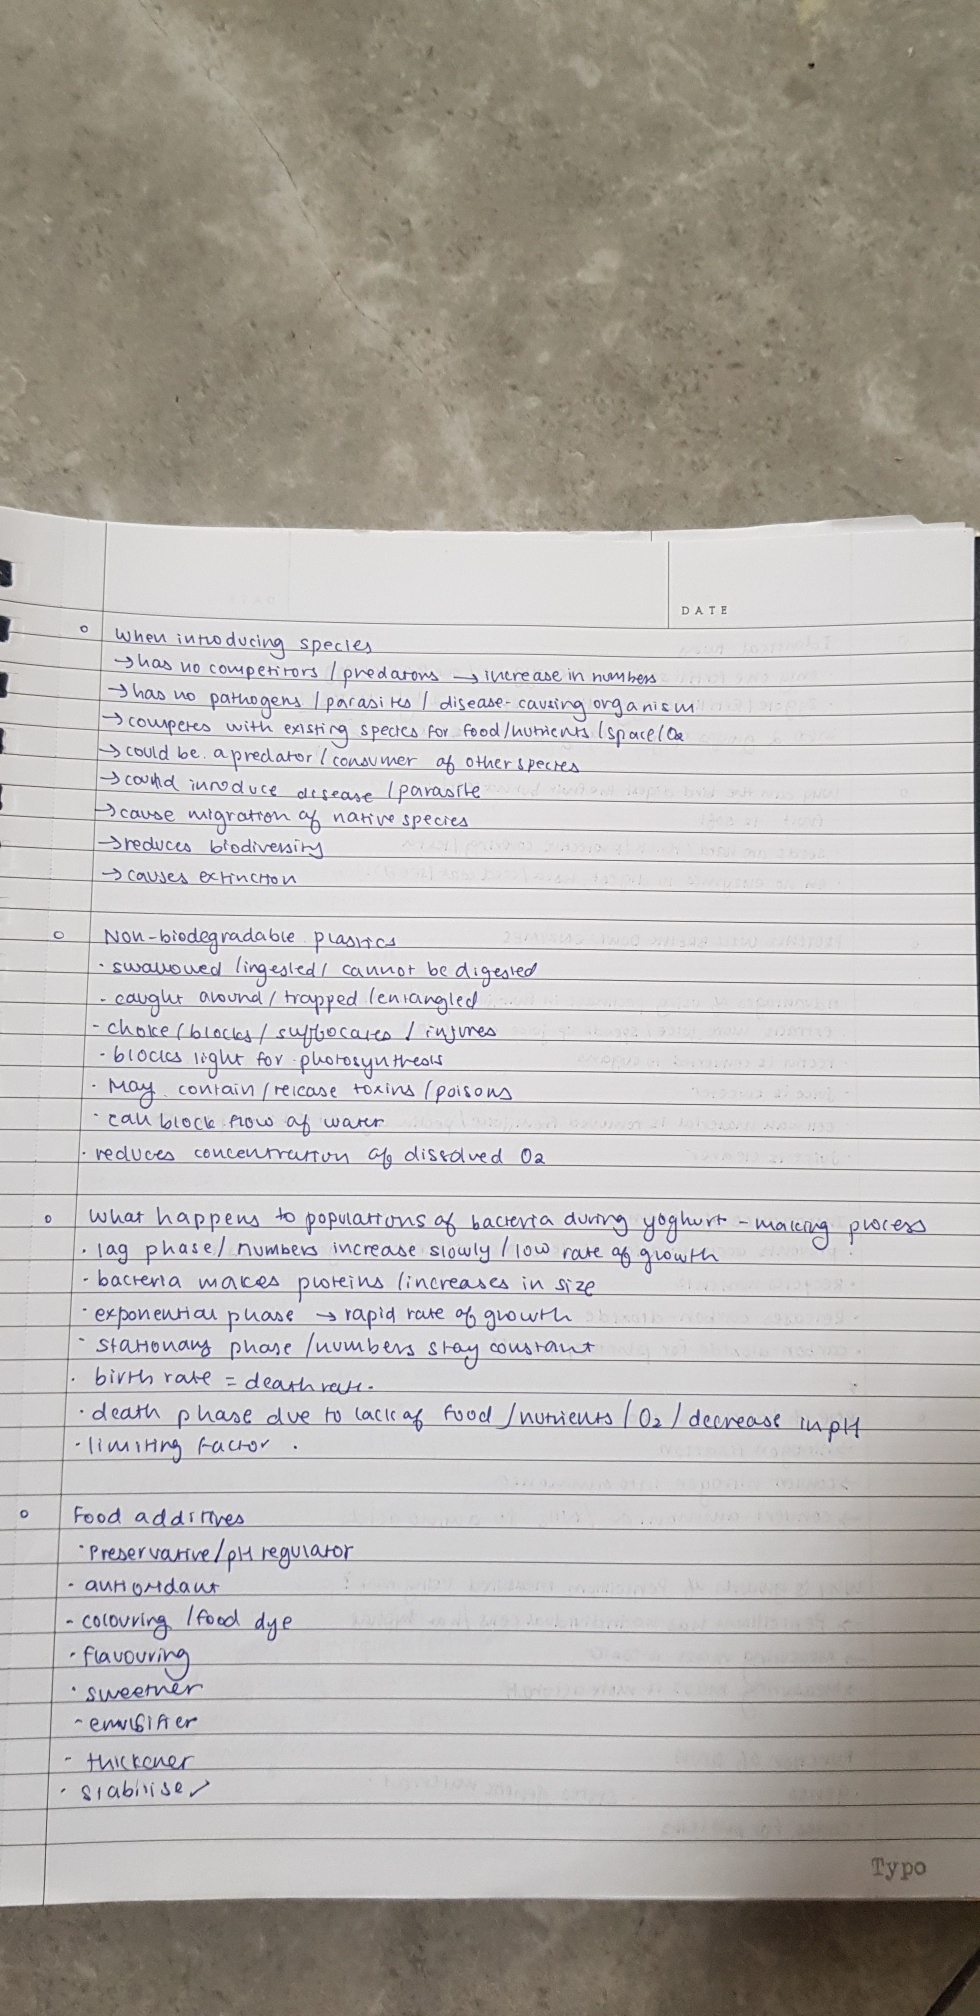 DATE
o When introducing species
→ has no competitors / predators → increase in numbers
→ has no pathogens / parasites / disease-causing organism
→ competes with existing species for food/nutrients/space/O2
→ could be a predator / consumer of other species
→ could introduce disease / parasite
→ cause migration of native species
→ reduces biodiversity
→ causes extinction
o Non-biodegradable plastics
· swallowed /ingested/ cannot be digested
- caught around / trapped /entangled
- choke / blocks / suffocates / injures
· blocks light for photosynthesis
· May contain / release toxins / poisons
· can block flow of water
· reduces concentration of dissolved O2
o What happens to populations of bacteria during yoghurt-making process
· lag phase / numbers increase slowly / low rate of growth
· bacteria makes proteins / increases in size
· exponential phase → rapid rate of growth
· stationary phase / numbers stay constant
· birth rate = death rate.
· death phase due to lack of food / nutrients / O2 / decrease in pH
· limiting factor.
o Food additives
· Preservative/pH regulator
- antioxidant
- colouring / food dye
· flavouring
· sweetner
- emulsifier
- thickener
· stabiliser
Typo